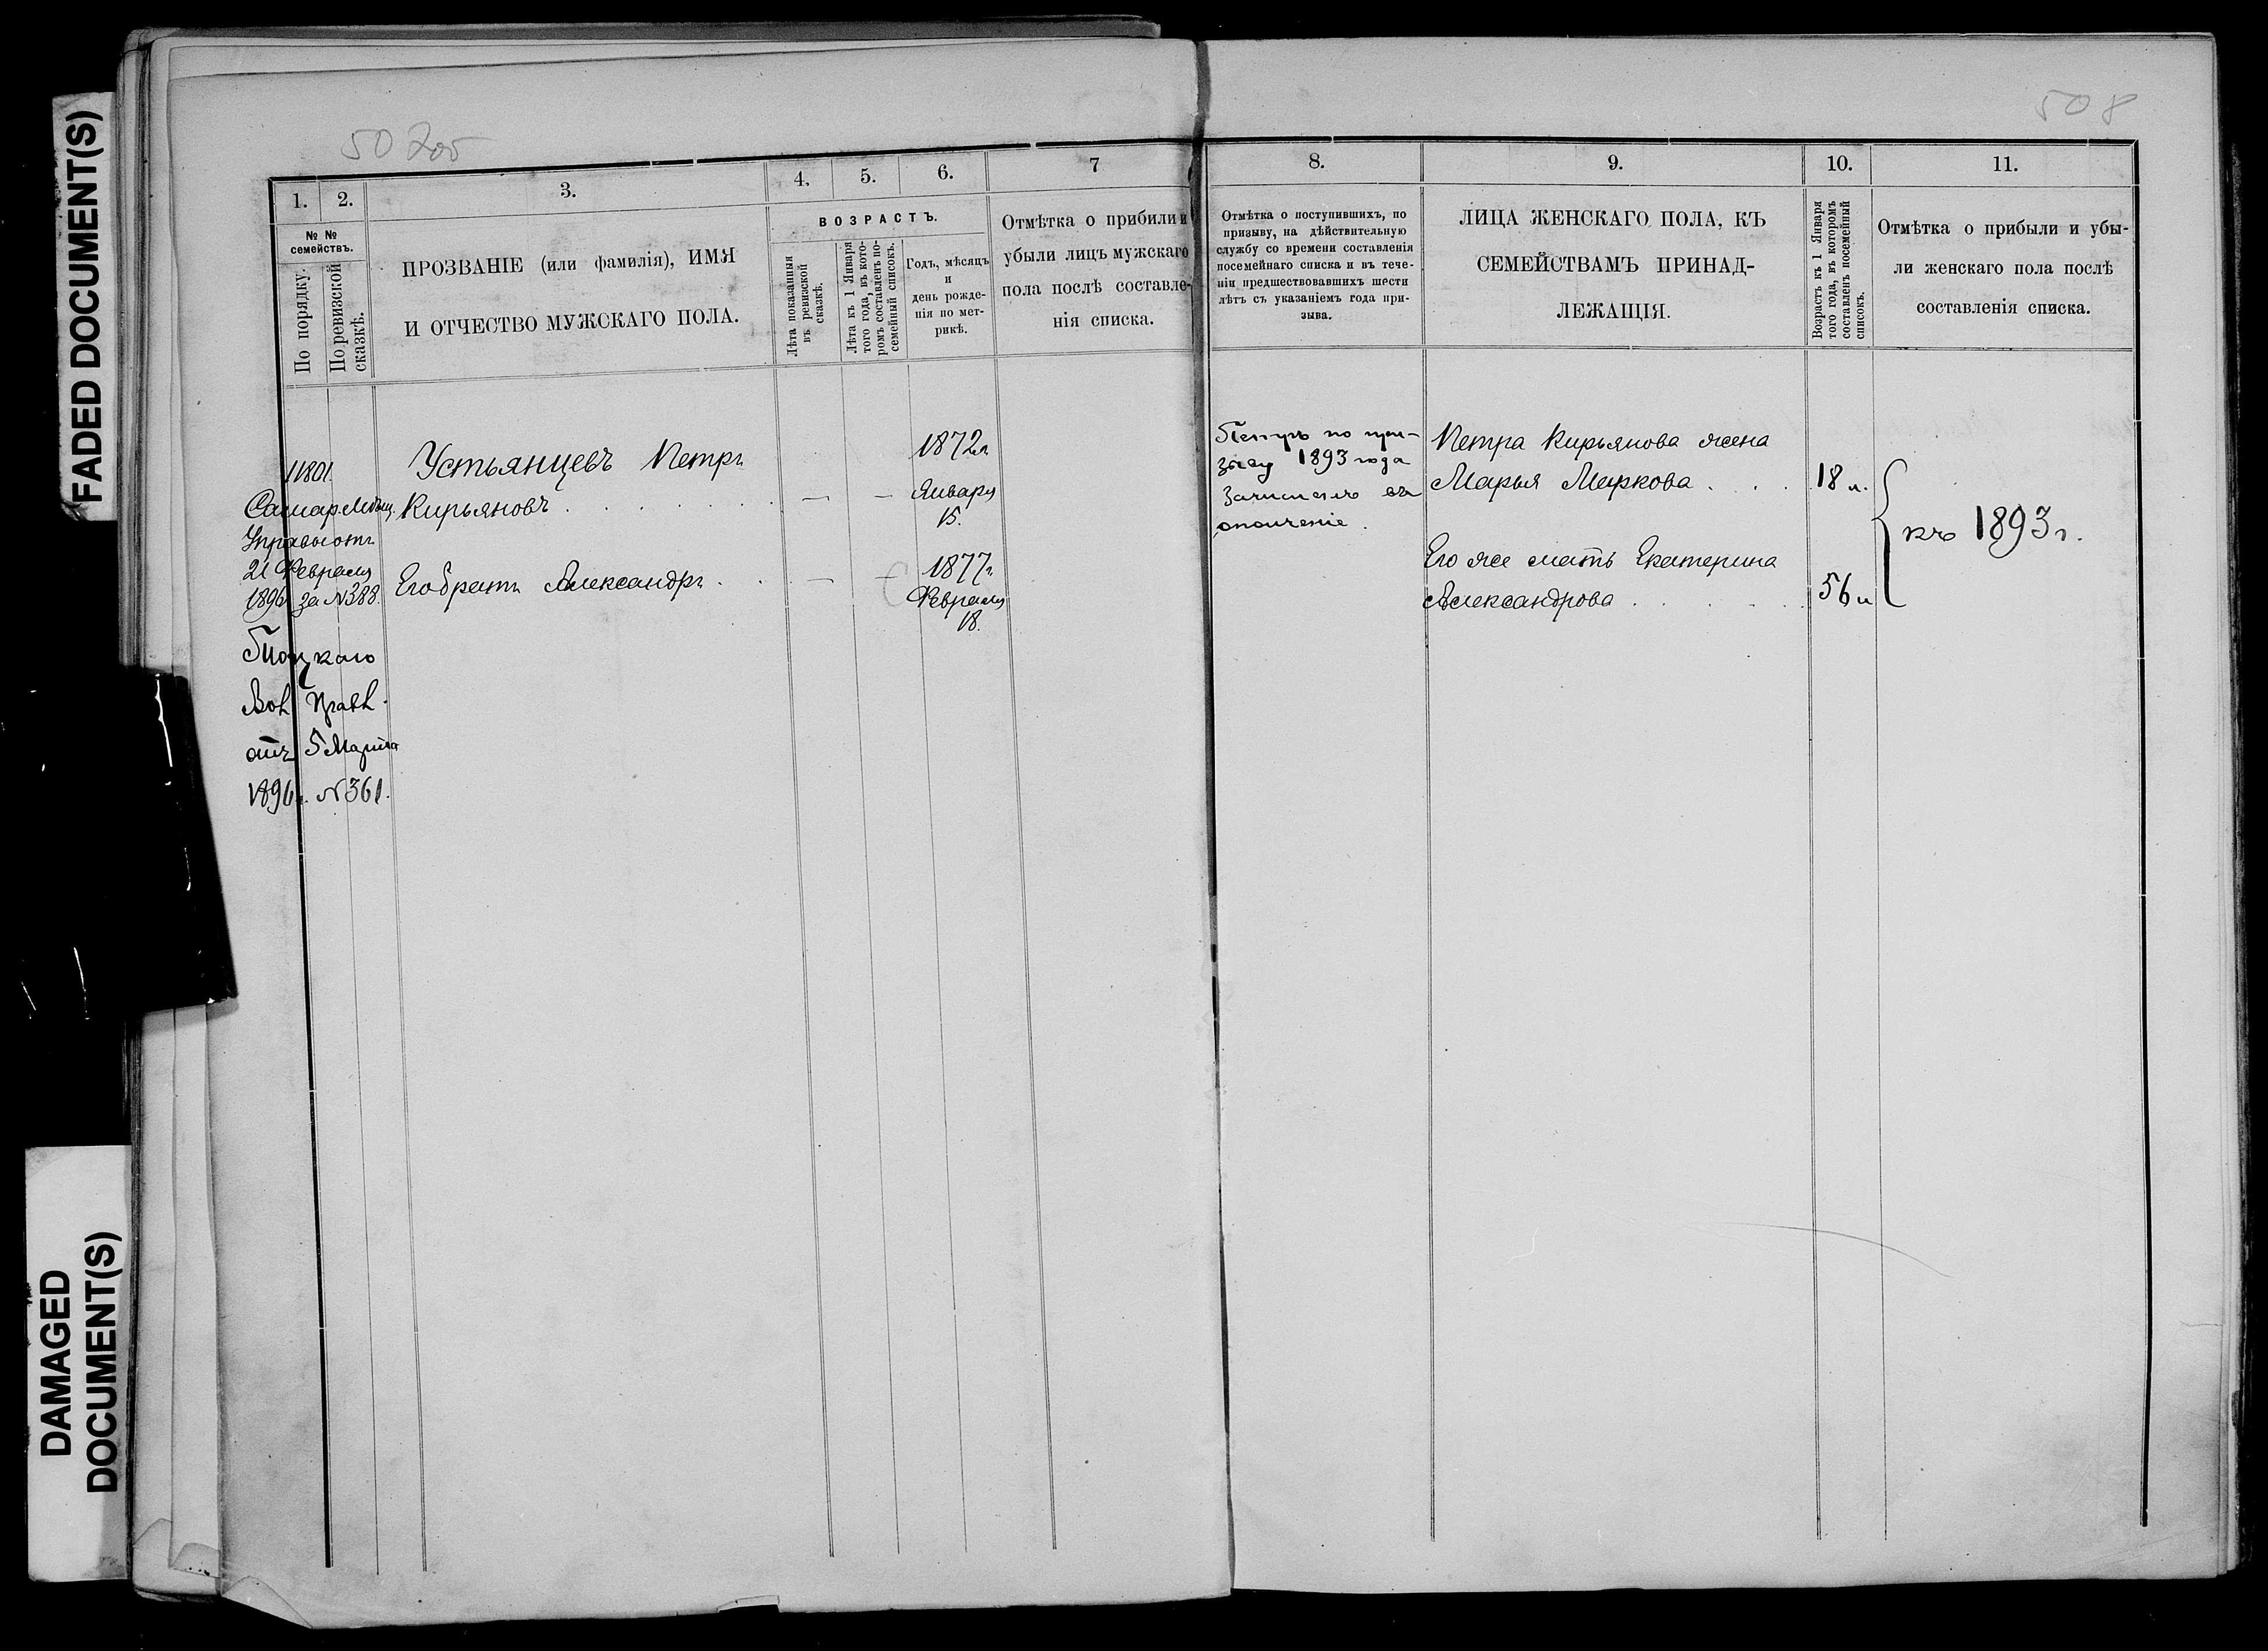 FADED DOCUMENT(S)
DAMAGED
DOCUMENT(S)
507об
508
1.
2.
3.
4.
5.
6.
7
8.
9.
10.
11.
№ №
семействъ.
По порядку.
По ревизской
сказкѣ.
ПРОЗВАНІЕ (или фамилія), ИМЯ
И ОТЧЕСТВО МУЖСКАГО ПОЛА.
ВОЗРАСТЪ.
Лѣта показанныя
въ ревизской
сказкѣ.
Лѣта къ 1 Января
того года, въ кото-
ромъ составленъ по-
семейный списокъ.
Годъ, мѣсяцъ
и
день рожде-
нія по мет-
рикѣ.
Отмѣтка о прибыли и
убыли лицъ мужскаго
пола послѣ составле-
нія списка.
Отмѣтка о поступившихъ, по
призыву, на дѣйствительную
службу со времени составленія
посемейнаго списка и въ тече-
ніи предшествовавшихъ шести
лѣтъ съ указаніемъ года при-
зыва.
ЛИЦА ЖЕНСКАГО ПОЛА, КЪ
СЕМЕЙСТВАМЪ ПРИНАД-
ЛЕЖАЩІЯ.
Возрастъ къ 1 Января
того года, въ которомъ
составленъ посемейный
списокъ.
Отмѣтка о прибыли и убы-
ли женскаго пола послѣ
составленія списка.
11801.
Самар. Мѣщ.
Управы отъ
21 Февраля
1896 за №388.
Вол Правл.
отъ 5 Марта
1896г. №361.
Устьянцевъ Петръ
Кирьяновъ . . . . . .
— —
1872г.
Января
15.
Его братъ Александръ . .
—
1877г.
Февраля
18.
Петръ по при-
зыву 1893 года
зачисленъ въ
ополченіе.
Петра Кирьянова жена
Марья Маркова . . .
18 л.
Его же мать Екатерина
Александрова . . . . .
56 л
къ 1893 г.